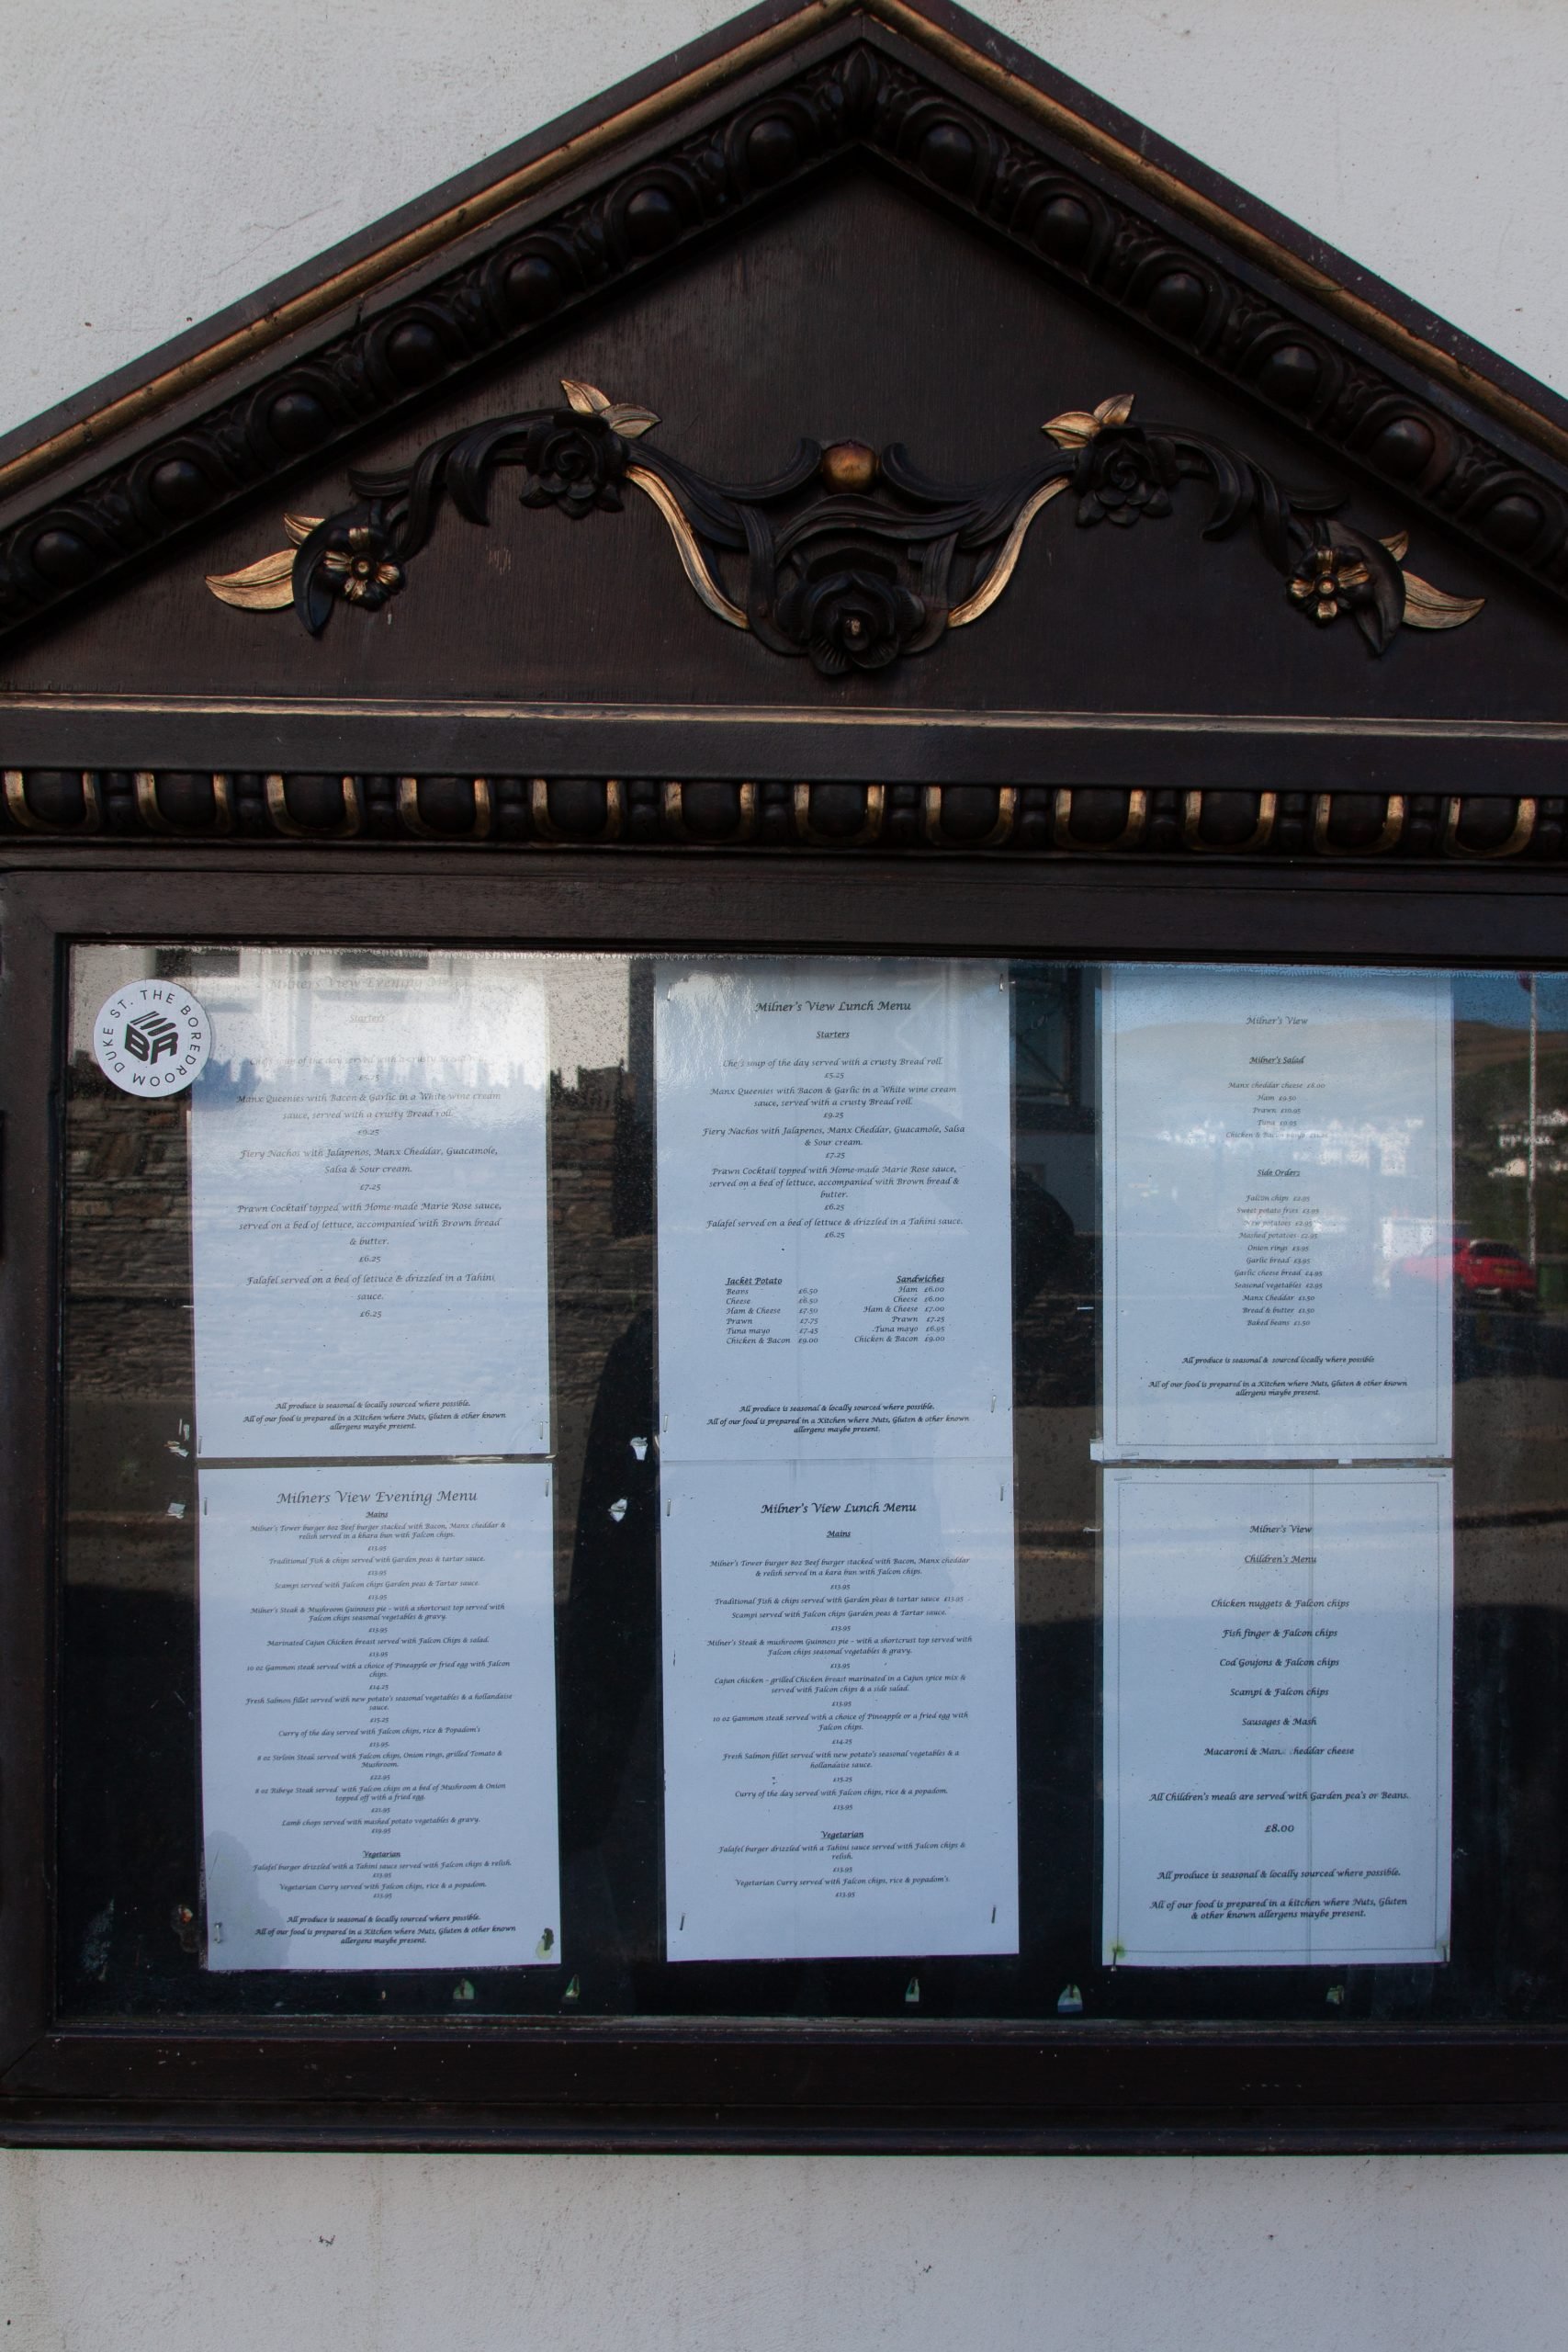 DUKE ST. THE BOREDROOM
BR
Milner's View Evening
Starters
soup of the day served with a crusty
£5.25
Manx Queenies with Bacon & Garlic in a White wine cream
sauce, served with a crusty Bread roll.
£9.25
Fiery Nachos with Jalapenos, Manx Cheddar, Guacamole,
Salsa & Sour cream.
£7.25
Prawn Cocktail topped with Home-made Marie Rose sauce,
served on a bed of lettuce, accompanied with Brown bread
& butter.
£6.25
Falafel served on a bed of lettuce & drizzled in a Tahini
sauce.
£6.25
All produce is seasonal & locally sourced where possible.
All of our food is prepared in a Kitchen where Nuts, Gluten & other known
allergens maybe present.
Milners View Evening Menu
Mains
Milner's Tower burger 8oz Beef burger stacked with Bacon, Manx cheddar &
relish served in a khara bun with Falcon chips.
£13.95
Traditional Fish & chips served with Garden peas & tartar sauce.
£13.95
Scampi served with Falcon chips Garden peas & Tartar sauce.
£13.95
Milner's Steak & Mushroom Guinness pie – with a shortcrust top served with
Falcon chips seasonal vegetables & gravy.
£13.95
Marinated Cajun Chicken breast served with Falcon Chips & salad.
£13.95
10 oz Gammon steak served with a choice of Pineapple or fried egg with Falcon
chips.
£14.25
Fresh Salmon fillet served with new potato's seasonal vegetables & a hollandaise
sauce.
£15.25
Curry of the day served with Falcon chips, rice & Popadom's
£13.95
8 oz Sirloin Steak served with Falcon chips, Onion rings, grilled Tomato &
Mushroom.
£22.95
8 oz Ribeye Steak served with Falcon chips on a bed of Mushroom & Onion
topped off with a fried egg.
£21.95
Lamb chops served with mashed potato vegetables & gravy.
£19.95
Vegetarian
Falafel burger drizzled with a Tahini sauce served with Falcon chips & relish.
£13.95
Vegetarian Curry served with Falcon chips, rice & a popadom.
£13.95
All produce is seasonal & locally sourced where possible.
All of our food is prepared in a Kitchen where Nuts, Gluten & other known
allergens maybe present.
Milner's View Lunch Menu
Starters
soup of the day served with a crusty Bread roll.
£5.25
Manx Queenies with Bacon & Garlic in a White wine cream
sauce, served with a crusty Bread roll.
£9.25
Fiery Nachos with Jalapenos, Manx Cheddar, Guacamole, Salsa
& Sour cream.
£7.25
Prawn Cocktail topped with Home-made Marie Rose sauce,
served on a bed of lettuce, accompanied with Brown bread &
butter.
£6.25
Falafel served on a bed of lettuce & drizzled in a Tahini sauce.
£6.25
Jacket Potato
Beans £6.50
Cheese £6.50
Ham & Cheese £7.50
Prawn £7.75
Tuna mayo £7.45
Chicken & Bacon £9.00
Sandwiches
Ham £6.00
Cheese £6.00
Ham & Cheese £7.00
Prawn £7.25
Tuna mayo £6.95
Chicken & Bacon £9.00
All produce is seasonal & locally sourced where possible.
All of our food is prepared in a Kitchen where Nuts, Gluten & other known
allergens maybe present.
Milner's View Lunch Menu
Mains
Milner's Tower burger 8oz Beef burger stacked with Bacon, Manx cheddar
& relish served in a kara bun with Falcon chips.
£13.95
Traditional Fish & chips served with Garden peas & tartar sauce £13.95
Scampi served with Falcon chips Garden peas & Tartar sauce.
£13.95
Milner's Steak & mushroom Guinness pie – with a shortcrust top served with
Falcon chips seasonal vegetables & gravy.
£13.95
Cajun chicken – grilled Chicken breast marinated in a Cajun spice mix &
served with Falcon chips & a side salad.
£13.95
10 oz Gammon steak served with a choice of Pineapple or a fried egg with
Falcon chips.
£14.25
Fresh Salmon fillet served with new potato's seasonal vegetables & a
hollandaise sauce.
£15.25
Curry of the day served with Falcon chips, rice & a popadom.
£13.95
Vegetarian
Falafel burger drizzled with a Tahini sauce served with Falcon chips &
relish.
£13.95
Vegetarian Curry served with Falcon chips, rice & popadom's
£13.95
Milner's View
Milner's Salad
Manx cheddar cheese £8.00
Ham £9.50
Prawn £10.95
Tuna £9.95
Chicken &
Side Orders
Falcon chips £2.95
Sweet potato fries £3.95
New potatoes £2.95
Mashed potatoes £2.95
Onion rings £3.95
Garlic bread £3.95
Garlic cheese bread £4.95
Seasonal vegetables £2.95
Manx Cheddar £1.50
Bread & butter £1.50
Baked beans £1.50
All produce is seasonal & sourced locally where possible
All of our food is prepared in a Kitchen where Nuts, Gluten & other known
allergens maybe present.
Milner's View
Children's Menu
Chicken nuggets & Falcon chips
Fish finger & Falcon chips
Cod Goujons & Falcon chips
Scampi & Falcon chips
Sausages & Mash
Macaroni & Man heddar cheese
All Children's meals are served with Garden pea's or Beans.
£8.00
All produce is seasonal & locally sourced where possible.
All of our food is prepared in a kitchen where Nuts, Gluten
& other known allergens maybe present.